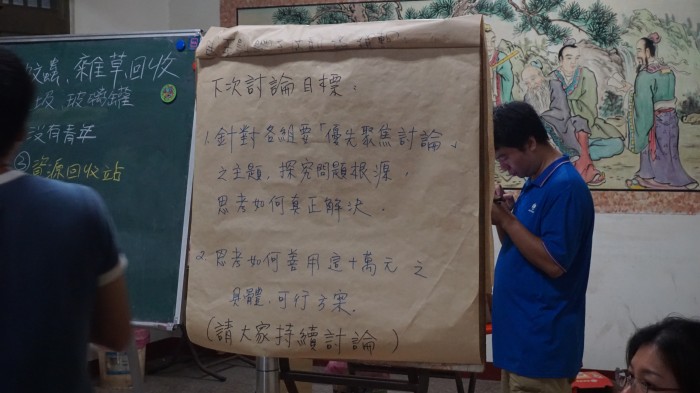 蚊蟲，雜草回收
圾 玻璃罐
沒有青年
② 資源回收站
下次討論目標：
1. 針對各組要「優先聚焦討論」
之主題，探究問題根源，
思考如何真正解決．
2. 思考如何善用這十萬元 之
具體，可行方案．
(請大家持續討論)